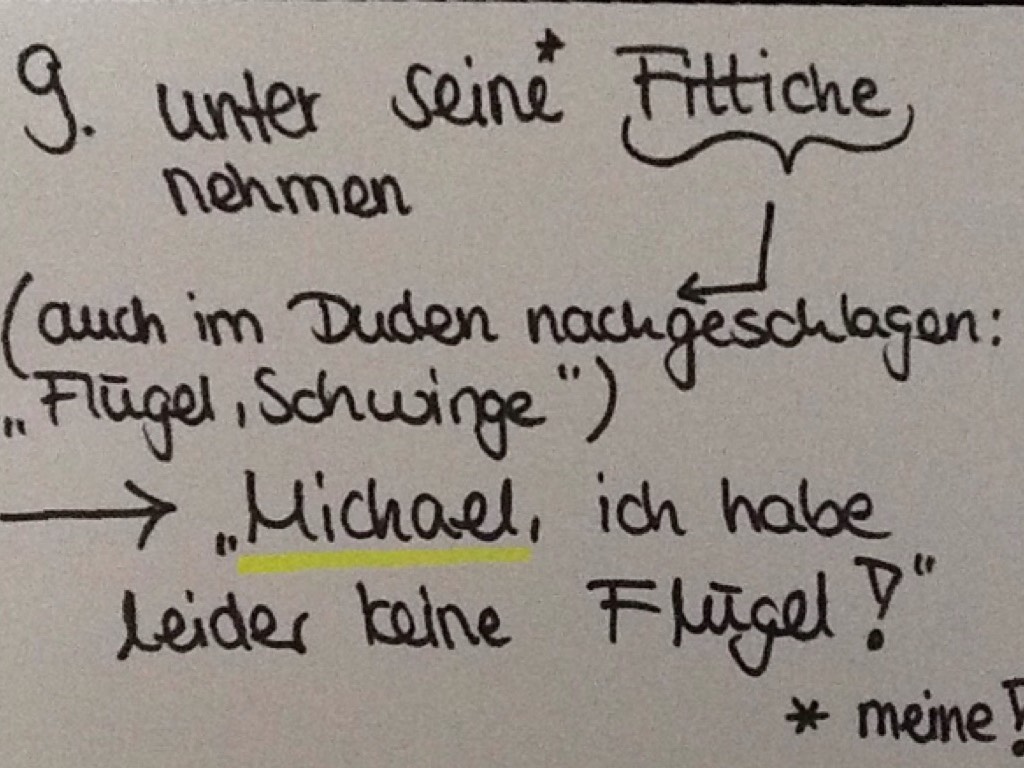 9. unter seine* Fittiche
nehmen
(auch im Duden nachgeschlagen:
„Flügel, Schwinge")
→ „Michael, ich habe
leider keine Flügel!"
* meine!